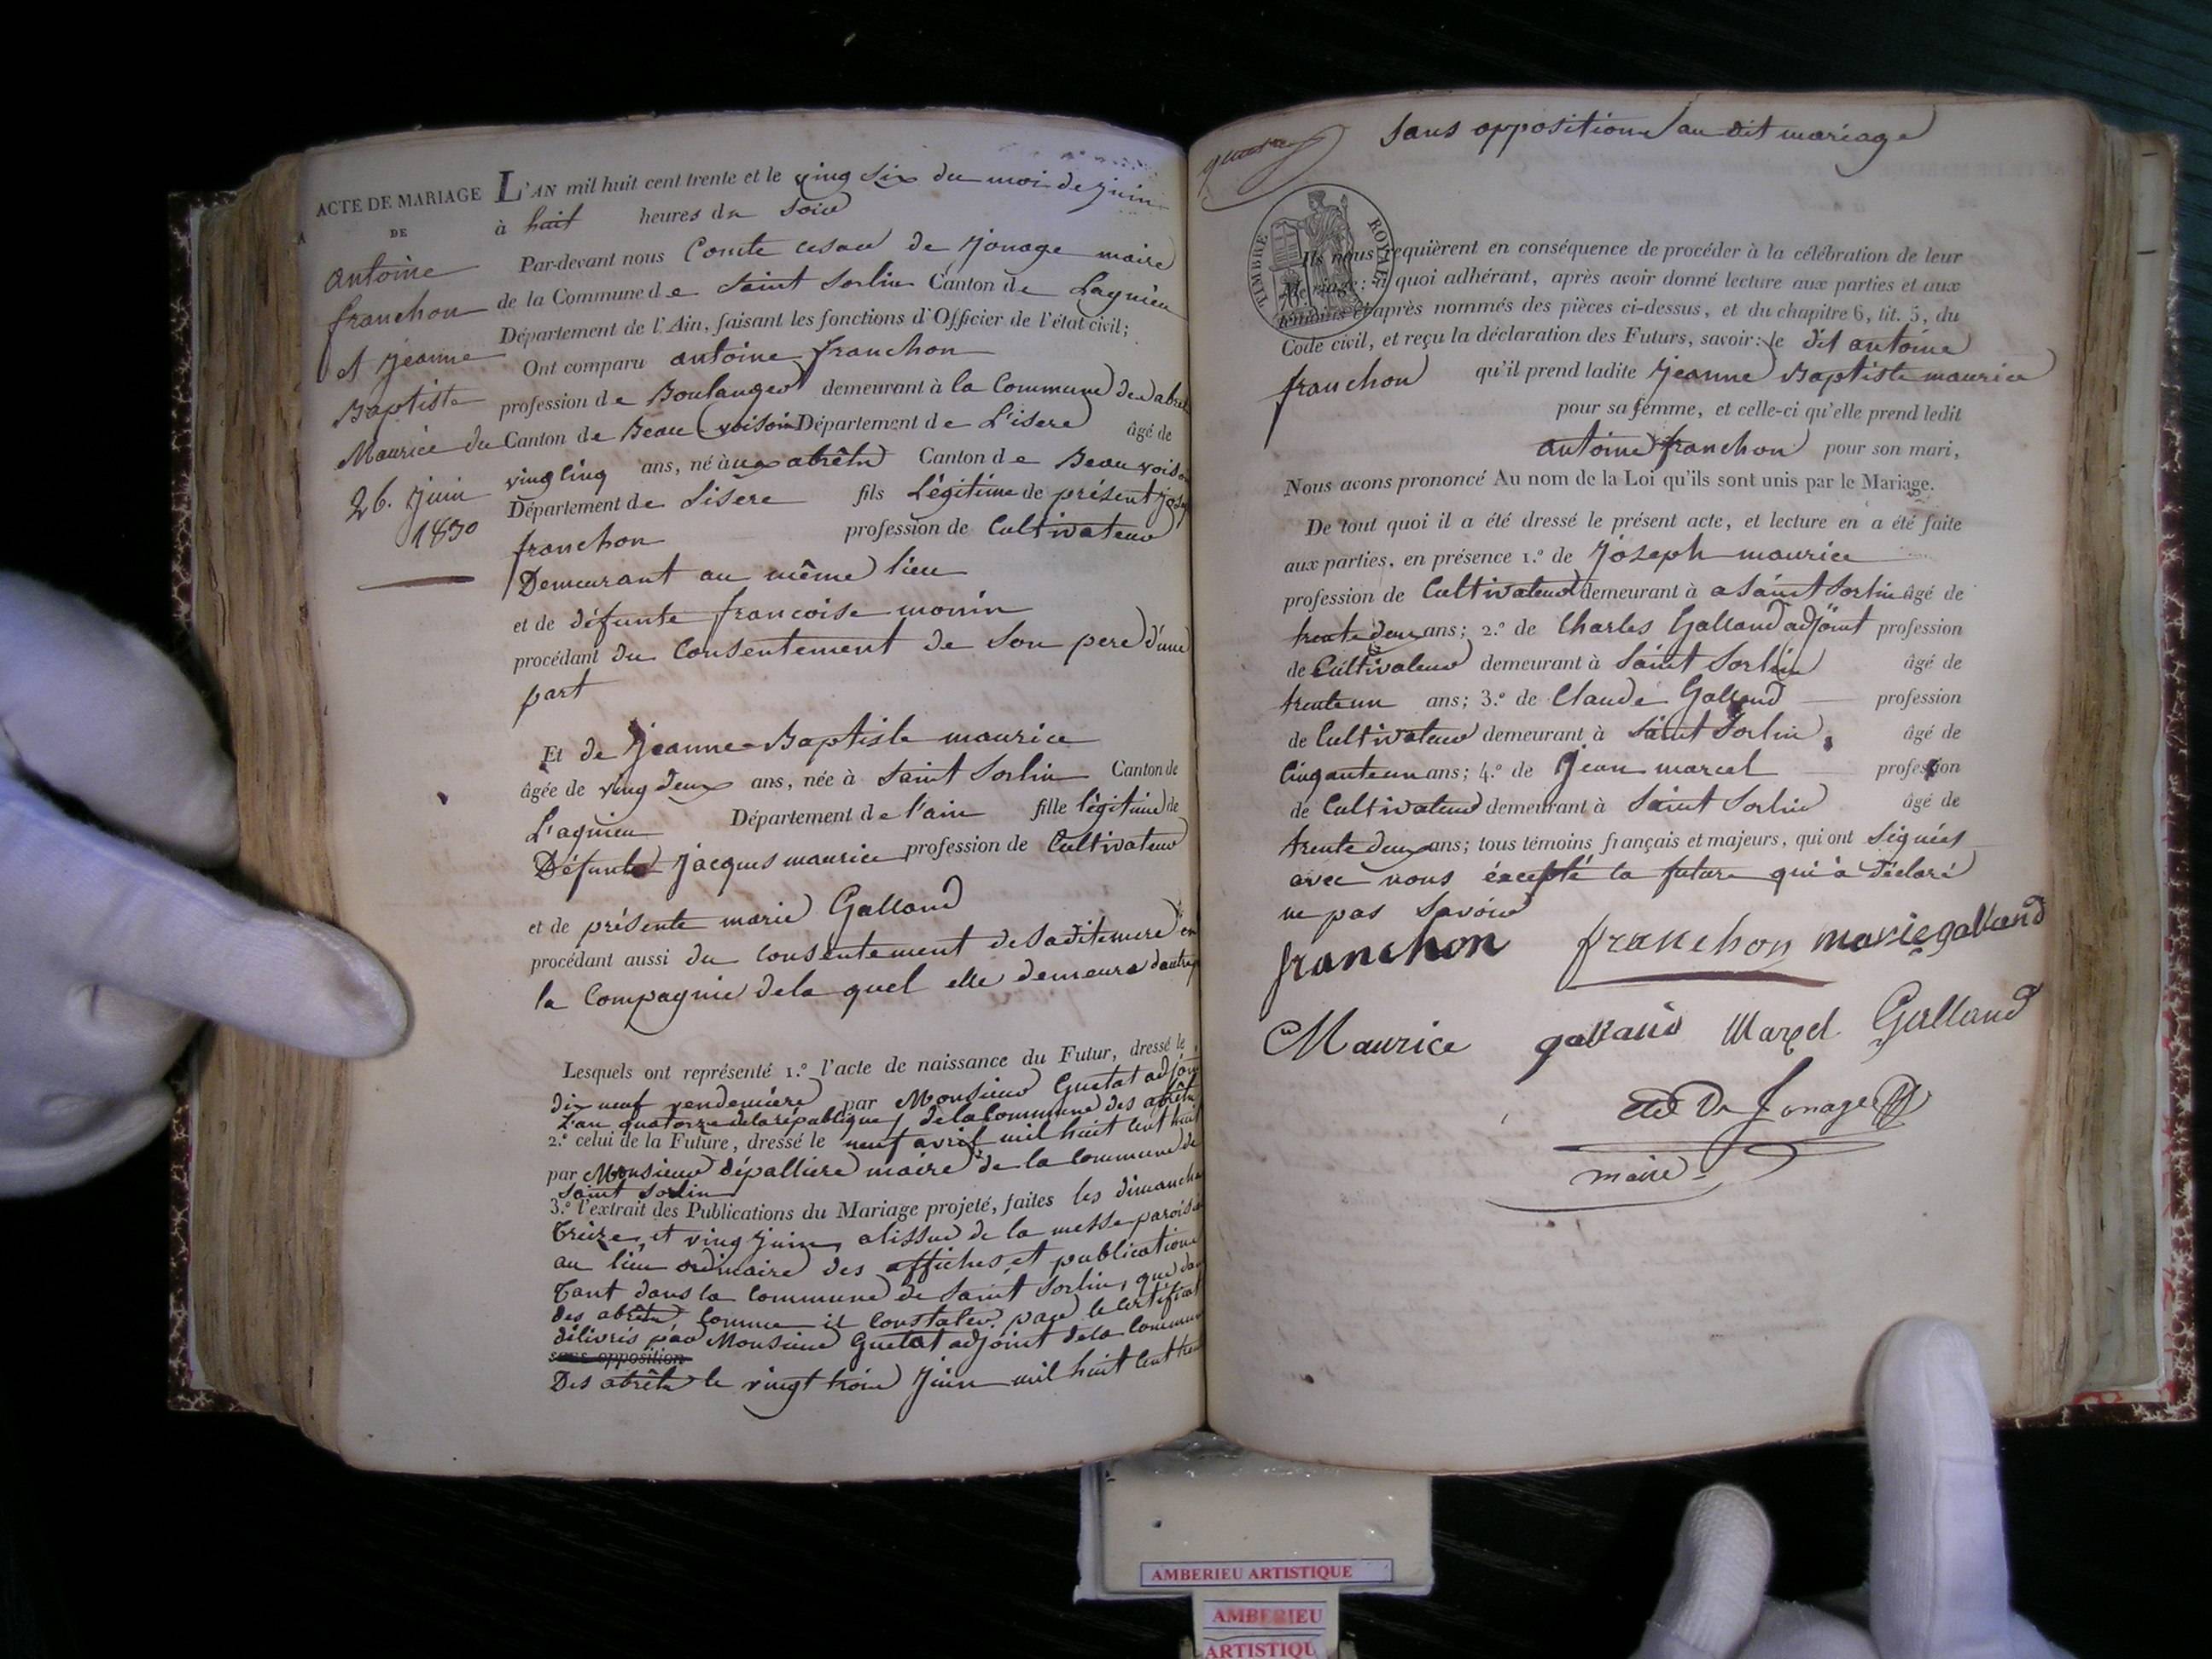 ACTE DE MARIAGE
DE
antoine
franchon
et Jeanne
Baptiste
Maurice du
26. Juin
1830
L'AN mil huit cent trente et le ving six du moi de juin
à huit heures du soir
Par-devant nous Comte cesar de Jonage maire
de la Commune de Saint Sorlin Canton de Lagnieu
Département de l'Ain, faisant les fonctions d'Officier de l'état civil;
Ont comparu antoine franchon
profession de Boulanger demeurant à la Commune des abrets
Canton de Beau voisin Département de L'isere âgé de
ving cinq ans, né à ux abrêts Canton de Beau voisin
Département de Lisere fils Légitime de présent Joseph
franchon profession de Cultivateur
Demeurant au même lieu
et de défunte francoise monin
procédant du Consentement de Son pere d'une
part
Et de Jeanne Baptiste maurice
âgée de ving deux ans, née à Saint Sorlin Canton de
L'agnieu Département de l'ain fille légitime de
Défunt Jacques maurice profession de Cultivateur
et de présente marie Galland
procédant aussi du Consentement de Sadite mere en
la Compagnie de la quel elle demeure dautre
Lesquels ont représenté 1.º l'acte de naissance du Futur, dressé le
dix neuf vendemiere par Monsieur Guetat adjoin
L'an quatorze de la république de la Commune des abrêts
2.º celui de la Future, dressé le neuf avril mil huit Cent huit
par Monsieur dépalliere maire de la Commune de
Saint Sorlin
3.º l'extrait des Publications du Mariage projeté, faites les dimanche
treize, et ving juin, a lissue de la messe paroissi
au lieu ordinaire des affiches et publication
tant dans la Commune de Saint Sorlin, que da
des abrêts, Comme il Constater par le certificat
délivrés par Monsieur Guetat adjoint de la Commun
sans opposition
Des abrêts le vingt trois Juin mil huit Cent tren
Sans opposition au dit mariage
TIMBRE ROYAL
Ils nous requièrent en conséquence de procéder à la célébration de leur
Mariage: à quoi adhérant, après avoir donné lecture aux parties et aux
témoins ci-après nommés des pièces ci-dessus, et du chapitre 6, tit. 5, du
Code civil, et reçu la déclaration des Futurs, savoir: le dit antoine
franchon qu'il prend ladite Jeanne Baptiste maurice
pour sa femme, et celle-ci qu'elle prend ledit
antoine franchon pour son mari,
Nous avons prononcé Au nom de la Loi qu'ils sont unis par le Mariage.
De tout quoi il a été dressé le présent acte, et lecture en a été faite
aux parties, en présence 1.º de Joseph maurice
profession de Cultivateur demeurant à a Saint Sorlin âgé de
trente deux ans; 2.º de Charles Galland adjoint profession
de Cultivateur demeurant à Saint Sorlin âgé de
trente un ans; 3.º de Claude Galland profession
de Cultivateur demeurant à Saint Sorlin, âgé de
Cinquante un ans; 4.º de Jean marcel profession
de Cultivateur demeurant à Saint Sorlin âgé de
trente deux ans; tous témoins français et majeurs, qui ont Signées
avec nous éxcepté la future qui à déclaré
ne pas Savoir
franchon franchon marie galland
Maurice galland Marcel Galland
De Jonage
maire
AMBERIEU ARTISTIQUE
AMBERIEU
ARTISTIQU